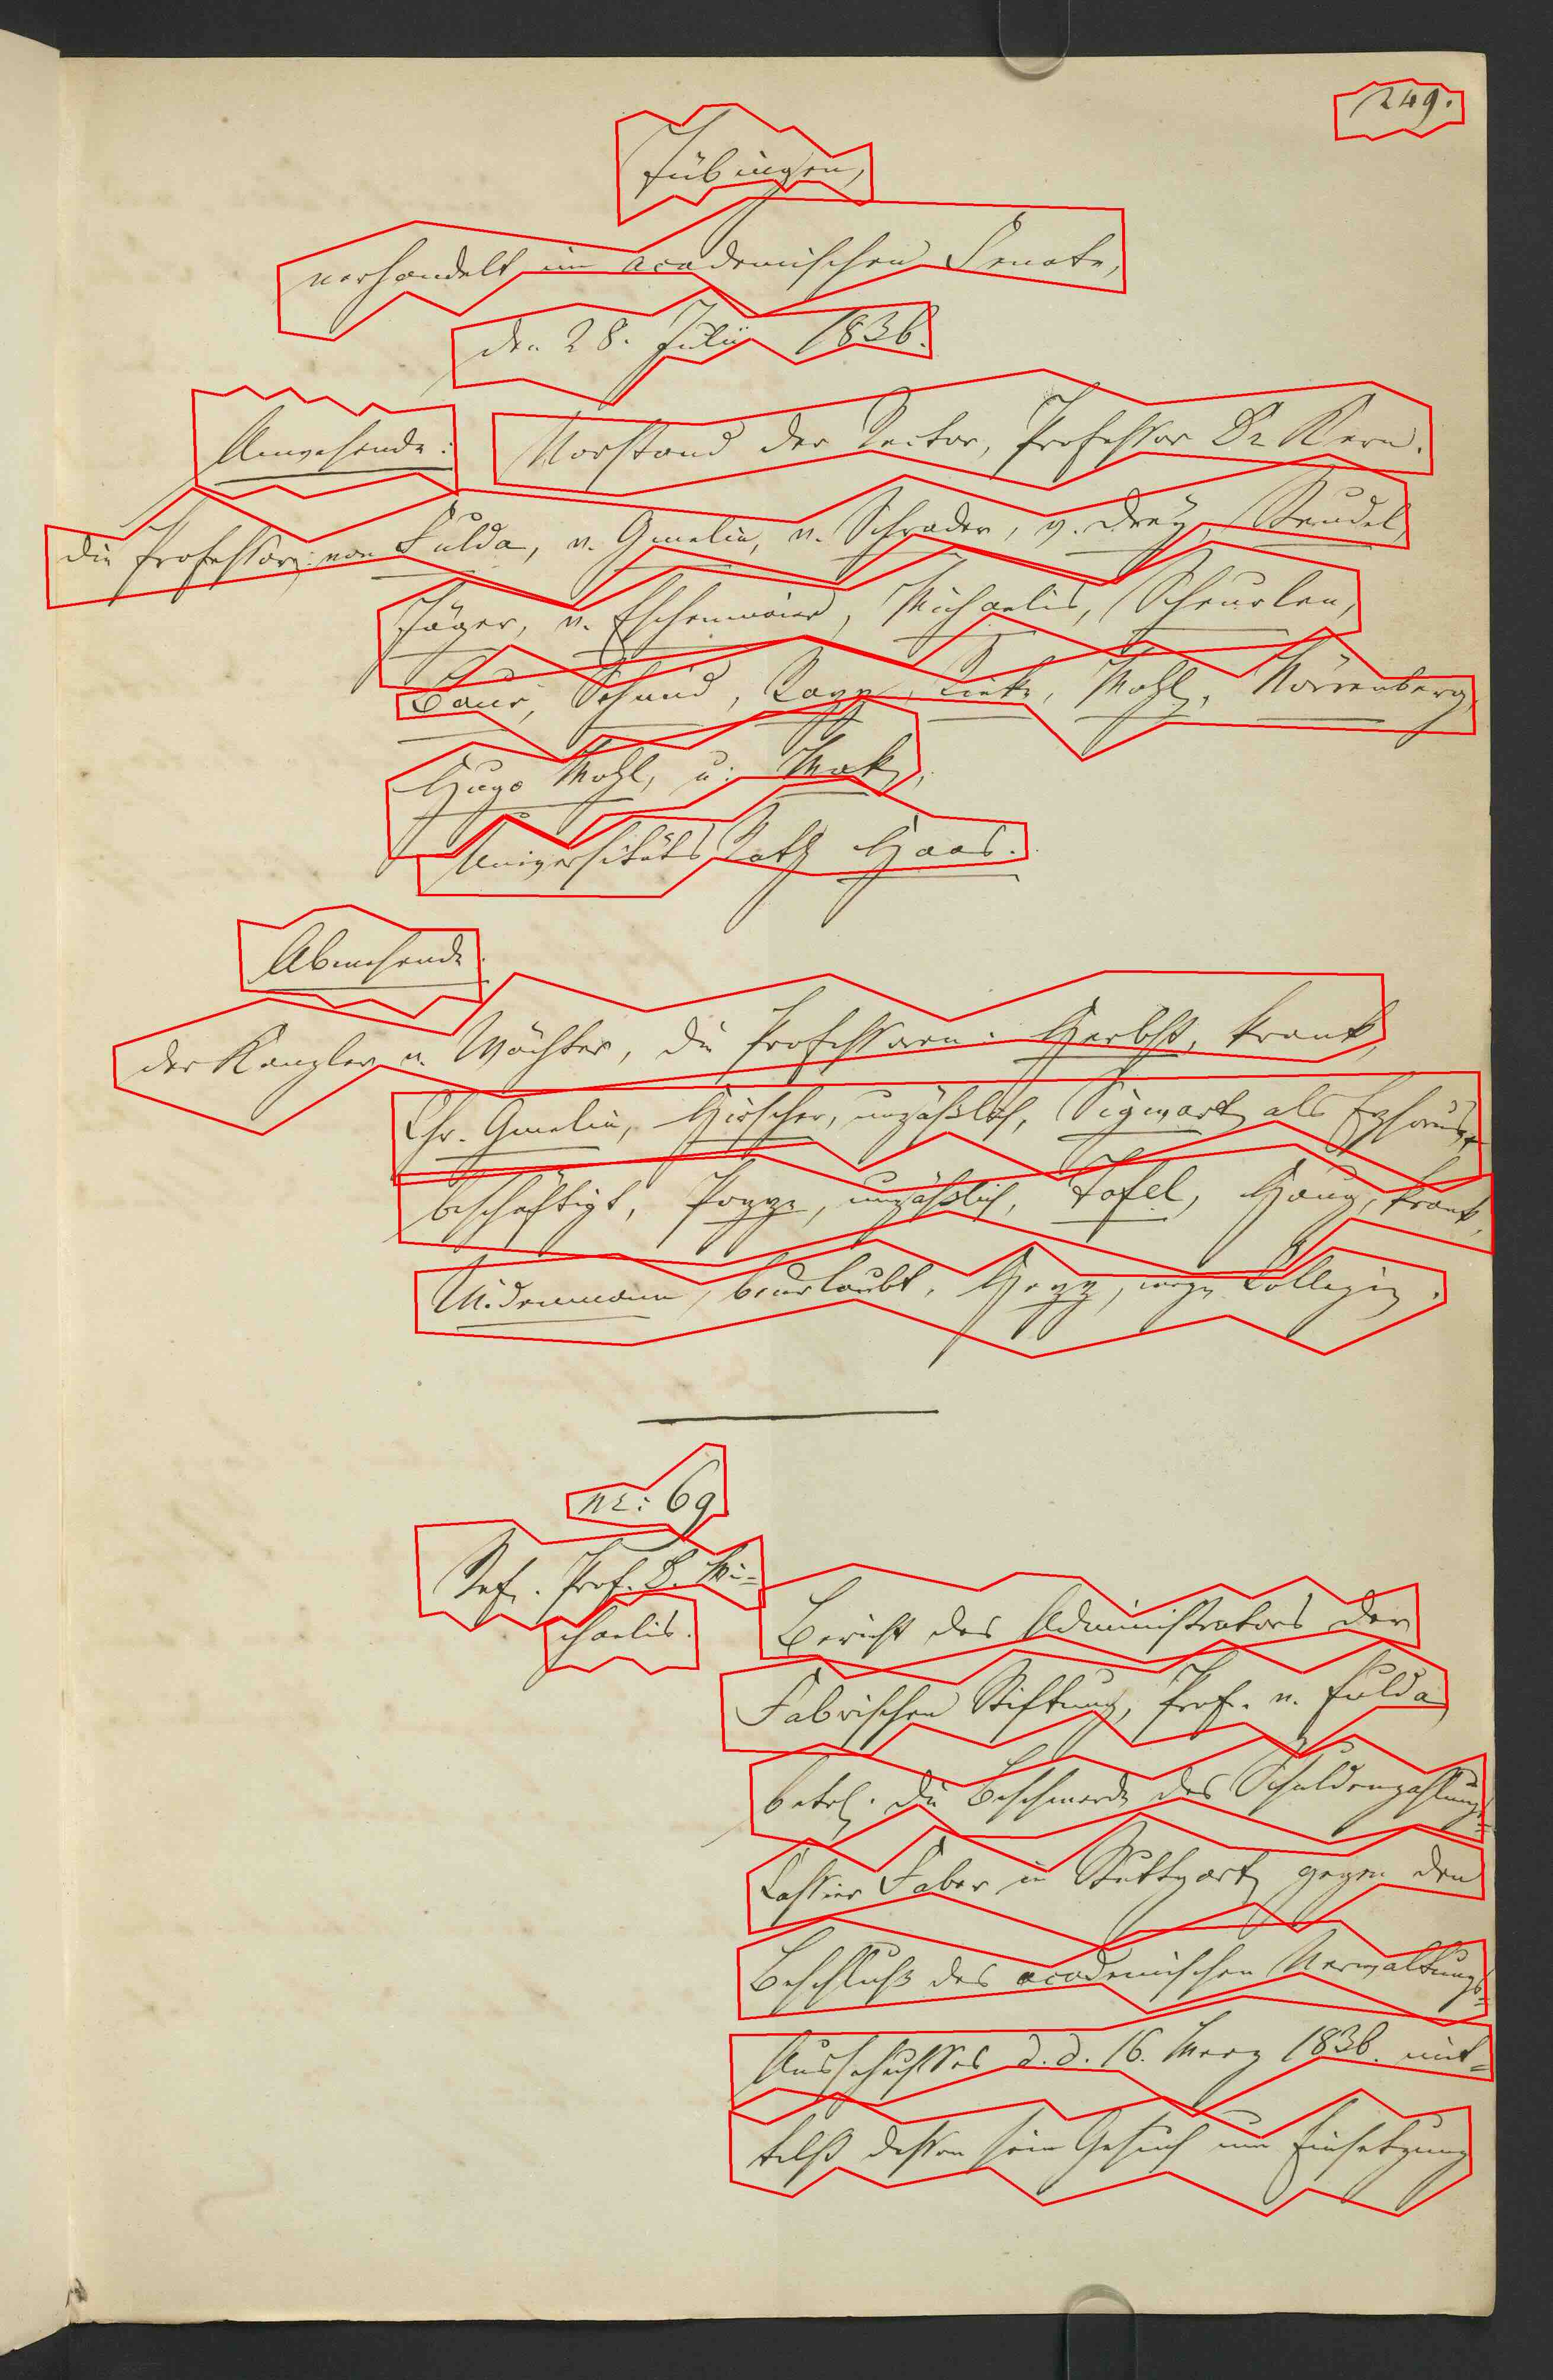 249.
Tübingen,
verhandelt im academischen Senate,
den 28. Julii 1836.
Anwesende:
Vorstand der Rector, Professor Dr Kern.
die Professoren: von Fulda, v. Gmelin, v. Schrader, v. Drey, Steudel,
Jäger, v. Eschenmaier, Michaelis, Scheurlen,
Baur, Schmid, Rapp, Riecke, Mohl, Nörrenberg,
Hugo Mohl, u.
Universitäts Rath Haas.
Abwesende.
der Kanzler v. Wächter, die Professoren: Herbst, krank,
Chr. Gmelin, Hirscher, unpäßlich, Sigwart als Ephorus
beschäftigt, Poppe, unpäßlich, Tafel, Haug, krank,
Widenmann, beurlaubt, Hepp, wegen Collegien.
nr: 69
Ref. Prof. D. Mi-
chaelis.
Bericht des Administrators der
Fabrischen Stiftung, Prof. v. Fulda
betr. die Beschwerde des Schuldenzahlungs-
Cassier Faber in Stuttgart gegen den
Beschluß des academischen Verwaltungs-
Ausschusses d. d. 16. Merz 1836. mit-
telst dessen sein Gesuch um Einsetzung